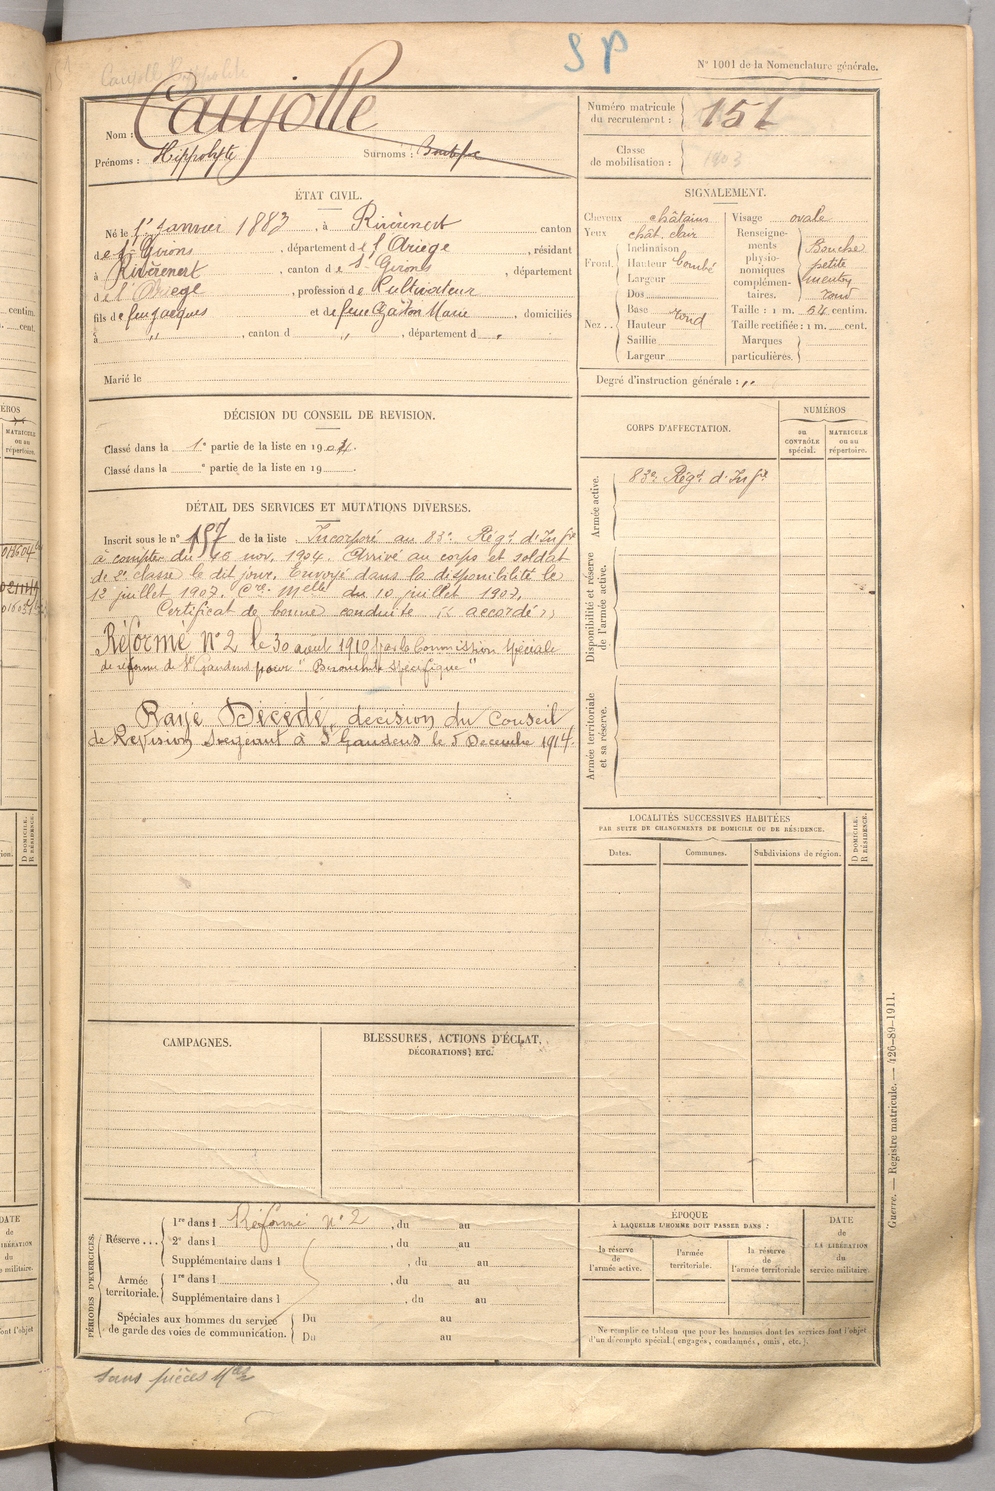 Caujolle Hippolyte
S P
N° 1001 de la Nomenclature générale.
Nom : Caujolle
Prénoms : Hippolyte Surnoms :
Numéro matricule du recrutement : 151
Classe de mobilisation : 1903
ÉTAT CIVIL.
Né le 1er Janvier 1883, à Rivèrenert canton
de St Girons, département de l'Ariège, résidant
à Rivèrenert, canton de St Girons, département
de l'Ariège, profession de Cultivateur
fils de feu Jacques et de feue Marie, domiciliés
à " , canton d " , département d "
Marié le
SIGNALEMENT.
Cheveux châtains
Yeux chât. clair
Front. Inclinaison
Hauteur bombé
Largeur
Nez.. Dos
Base rond
Hauteur
Saillie
Largeur
Visage ovale
Renseignements physionomiques complémentaires. Bouche petite menton rond
Taille : 1 m. 54 centim.
Taille rectifiée : 1 m. cent.
Marques particulières.
Degré d'instruction générale : "
DÉCISION DU CONSEIL DE REVISION.
Classé dans la 1e partie de la liste en 1904.
Classé dans la e partie de la liste en 19 .
DÉTAIL DES SERVICES ET MUTATIONS DIVERSES.
Inscrit sous le n° 197 de la liste. Incorporé au 83e Régt d'Infie
à compter du 16 nov. 1904. Arrivé au corps et soldat
de 2e classe le dit jour. Envoyé dans la disponibilité le
12 juillet 1907. Melle du 10 juillet 1907.
Certificat de bonne conduite « accordé »
Réformé n° 2 le 30 août 1910 par la Commission Spéciale
de réforme de St Gaudens pour " Bronchite Spécifique "
Rayé Décédé, décision du Conseil
de Révision siégeant à St Gaudens le 5 Décembre 1914.
CORPS D'AFFECTATION.
NUMÉROS
au CONTRÔLE spécial.
MATRICULE ou au répertoire.
Armée active.
83e Régt d'Infie
Disponibilité et réserve de l'armée active.
Armée territoriale et sa réserve.
LOCALITÉS SUCCESSIVES HABITÉES
PAR SUITE DE CHANGEMENTS DE DOMICILE OU DE RÉSIDENCE.
D DOMICILE.
R RÉSIDENCE.
Dates. Communes. Subdivisions de région.
CAMPAGNES.
BLESSURES, ACTIONS D'ÉCLAT,
DÉCORATIONS, ETC.
PÉRIODES D'EXERCICES.
Réserve... 1re dans l Réformé n° 2, du au
2e dans l , du au
Supplémentaire dans l , du au
Armée territoriale. 1re dans l , du au
Supplémentaire dans l , du au
Spéciales aux hommes du service de garde des voies de communication. Du au
Du au
ÉPOQUE
À LAQUELLE L'HOMME DOIT PASSER DANS :
la réserve de l'armée active.
l'armée territoriale.
la réserve de l'armée territoriale
DATE de LA LIBÉRATION du service militaire.
Ne remplir ce tableau que pour les hommes dont les services font l'objet
d'un décompte spécial ( engagés, condamnés, omis, etc. ).
Guerre. — Registre matricule. — 426-89-1911.
sans pièces